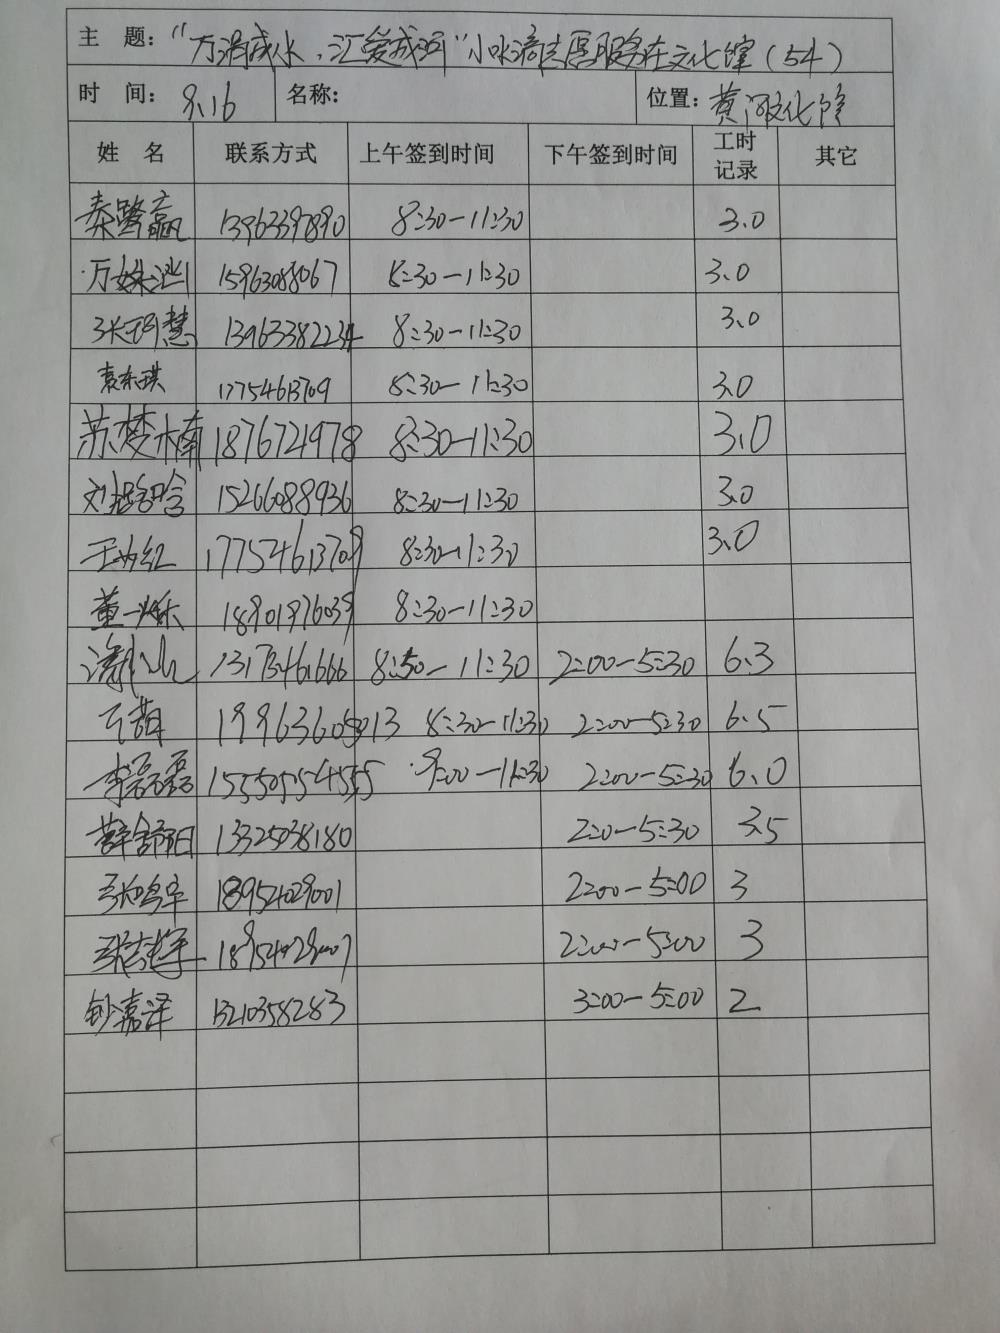 主 题: "万滴成水,汇爱成河"小水滴志愿服务在文化馆(54)
时 间: 9.16 名称: 位置: 黄河文化馆
姓 名 联系方式 上午签到时间 下午签到时间 工时记录 其它
秦鹭赢 13963397890 8:30-11:30 3.0
万姝 15963088067 8:30-11:30 3.0
张玥慧 13963382234 8:30-11:30 3.0
袁东琪 17754613709 8:30-11:30 3.0
苏梦楠 1876721978 8:30-11:30 3.0
刘 晗 15266088936 8:30-11:30 3.0
于 红 17754613709 8:30-11:30 3.0
董一 18901976039 8:30-11:30
13173461666 8:50-11:30 2:00-5:30 6.3
19963605913 8:30-11:30 2:00-5:30 6.5
李磊磊 15550545455 9:00-11:30 2:00-5:30 6.0
薛舒阳 13325038180 2:0-5:30 3.5
张鸣宇 18954029001 2:00-5:00 3
张 宇 18954029001 2:00-5:00 3
钞嘉泽 13210358283 3:00-5:00 2